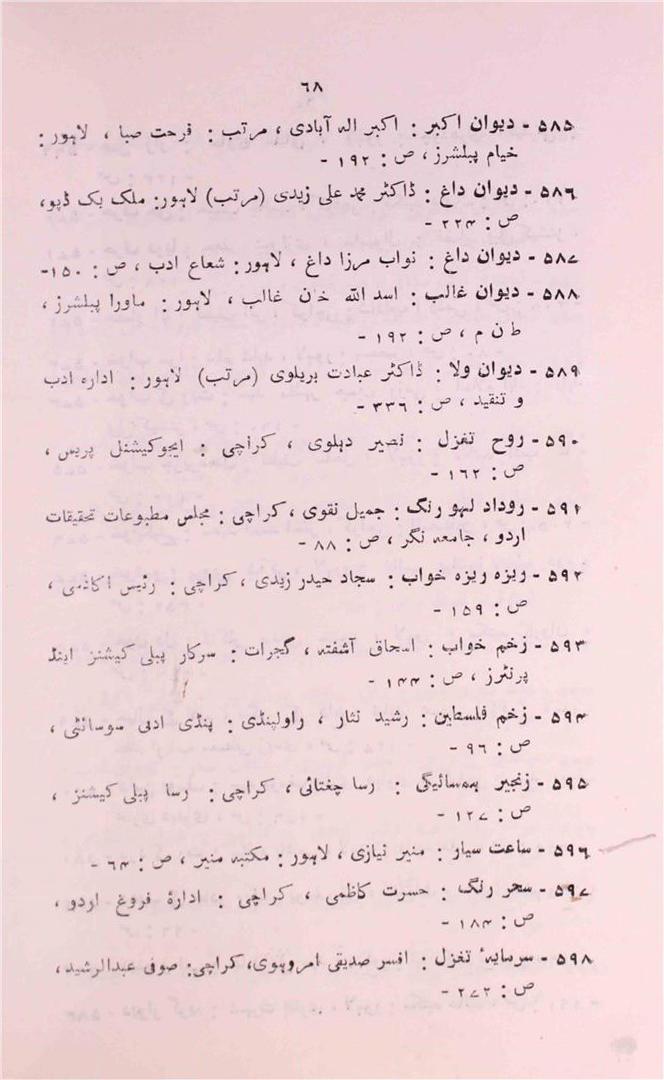 ٦٨
۵۸۵ - دیوان اکبر : اکبر الہ آبادی ، مرتب : فرحت صبا ، لاہور :
خیام پبلشرز ، ص : ۱۹۲ -
۵۸٦ - دیوان داغ : ڈاکٹر محمد علی زیدی (مرتب) لاہور: ملک بک ڈپو،
ص : ۲۲۴ -
۵۸۷ - دیوان داغ : نواب مرزا داغ ، لاہور : شعاع ادب ، ص : ۱۵۰-
۵۸۸ - دیوان غالب : اسد اللہ خان غالب ، لاہور : ماورا پبلشرز ،
ط ن م ، ص : ۱۹۲ -
۵۸۹ - دیوان ولا : ڈاکٹر عبادت بریلوی (مرتب) لاہور : ادارہ ادب
و تنقید ، ص : ۳۳٦ -
۵۹۰ - روح تغزل : نصیر دہلوی ، کراچی : ایجوکیشنل پریس ،
ص : ۱٦۲ -
۵۹۱ - روداد لہو رنگ : جمیل نقوی ، کراچی : مجلس مطبوعات تحقیقات
اردو ، جامعہ نگر ، ص : ۸۸ -
۵۹۲ - ریزہ ریزہ خواب : سجاد حیدر زیدی ، کراچی : رئیس اکاڈمی ،
ص : ۱۵۹ -
۵۹۳ - زخم خواب : اسحاق آشفتہ ، گجرات : سرکار پبلی کیشنز اینڈ
پرنٹرز ، ص : ۱۴۴ -
۵۹۴ - زخم فلسطین : رشید نثار ، راولپنڈی : پنڈی ادبی سوسائٹی ،
ص : ۹٦ -
۵۹۵ - زنجیر ہمسائیگی : رسا چغتائی ، کراچی : رسا پبلی کیشنز ،
ص : ۱۲۷ -
۵۹٦ - ساعت سیار : منیر نیازی ، لاہور : مکتبہ منیر ، ص : ٦۴ -
۵۹۷ - سحر رنگ : حسرت کاظمی ، کراچی : ادارۂ فروغ اردو ،
ص : ۱۸۴ -
۵۹۸ - سرسایۂ تغزل : افسر صدیقی امروہوی، کراچی: صوفی عبدالرشید،
ص : ۲۷۲ -